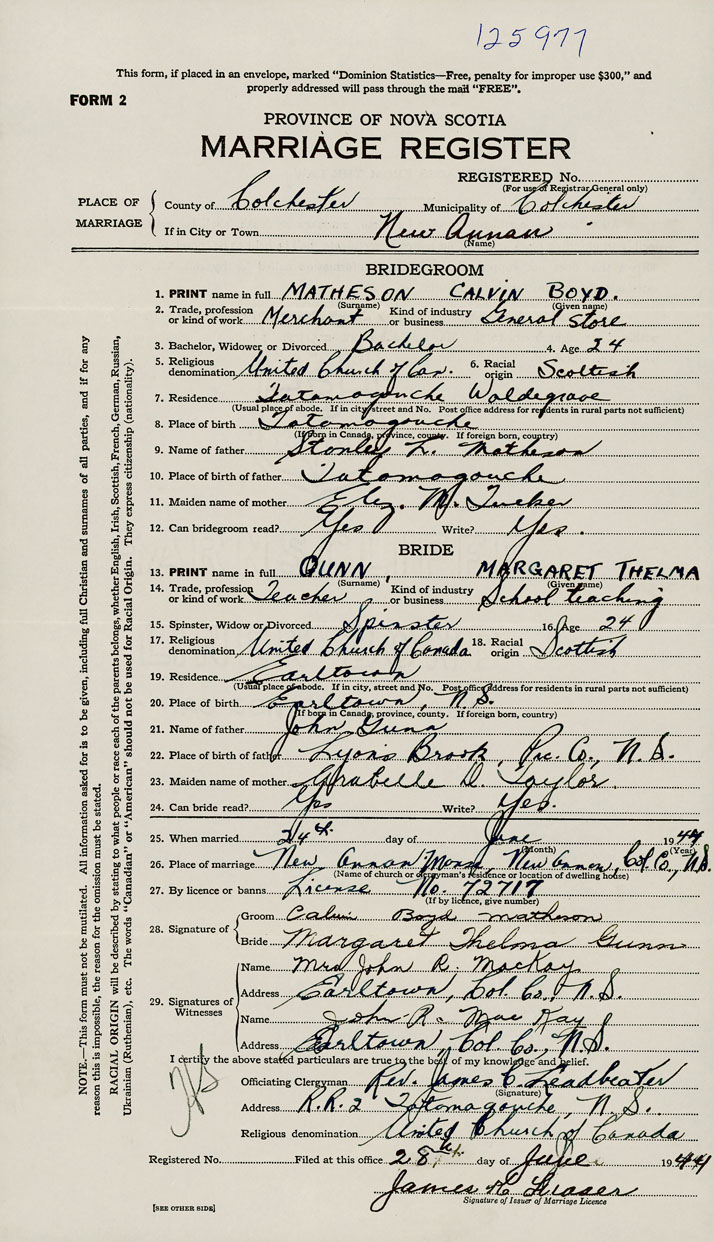 125977
This form, if placed in an envelope, marked "Dominion Statistics—Free, penalty for improper use $300," and
properly addressed will pass through the mail "FREE".
FORM 2
PROVINCE OF NOVA SCOTIA
MARRIAGE REGISTER
REGISTERED No.
(For use of Registrar General only)
PLACE OF MARRIAGE
County of Colchester Municipality of Colchester
If in City or Town New Annan
(Name)
BRIDEGROOM
1. PRINT name in full MATHESON CALVIN BOYD.
(Surname) (Given name)
2. Trade, profession or kind of work Merchant Kind of industry or business General Store
3. Bachelor, Widower or Divorced Bachelor 4. Age 24
5. Religious denomination United Church of Can. 6. Racial origin Scottish
7. Residence Tatamagouche Waldegrave
(Usual place of abode. If in city, street and No. Post office address for residents in rural parts not sufficient)
8. Place of birth Tatamagouche
(If born in Canada, province, county. If foreign born, country)
9. Name of father Stanley L. Matheson
10. Place of birth of father Tatamagouche
11. Maiden name of mother Eliz. M. Tucker
12. Can bridegroom read? Yes Write? Yes.
BRIDE
13. PRINT name in full GUNN, MARGARET THELMA
(Surname) (Given name)
14. Trade, profession or kind of work Teacher Kind of industry or business School teaching
15. Spinster, Widow or Divorced Spinster 16. Age 24
17. Religious denomination United Church of Canada 18. Racial origin Scottish
19. Residence Earltown
(Usual place of abode. If in city, street and No. Post office address for residents in rural parts not sufficient)
20. Place of birth Earltown, N.S.
(If born in Canada, province, county. If foreign born, country)
21. Name of father John Gunn
22. Place of birth of father Lyons Brook, Pic. Co., N.S.
23. Maiden name of mother D. Taylor
24. Can bride read? Yes Write? Yes.
25. When married 24th day of June 1944
(Month) (Year)
26. Place of marriage New Annan Manse, New Annan, Col. Co., N.S.
(Name of church or clergyman's residence or location of dwelling house)
27. By licence or banns License No. 72717
(If by licence, give number)
28. Signature of
Groom Calvin Boyd Matheson
Bride Margaret Thelma Gunn
29. Signatures of Witnesses
Name Mrs John R. MacKay
Address Earltown, Col. Co., N.S.
Name John R. MacKay
Address Earltown, Col. Co., N.S.
I certify the above stated particulars are true to the best of my knowledge and belief.
Officiating Clergyman Rev. James C. Leadbeater
(Signature)
Address R.R. 2 Tatamagouche, N.S.
Religious denomination United Church of Canada
Registered No. Filed at this office 28th day of June 1944
James K. Fraser
Signature of Issuer of Marriage Licence
[SEE OTHER SIDE]
NOTE.—This form must not be mutilated. All information asked for is to be given, including full Christian and surnames of all parties, and if for any
reason this is impossible, the reason for the omission must be stated.
RACIAL ORIGIN will be described by stating to what people or race each of the parents belongs, whether English, Irish, Scottish, French, German, Russian,
Ukrainian (Ruthenian), etc. The words "Canadian" or "American" should not be used for Racial Origin. They express citizenship (nationality).